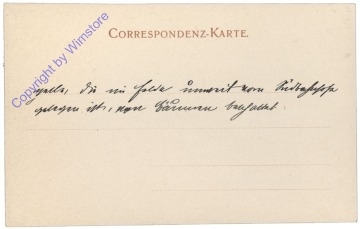 Copyright by Wimstore
CORRESPONDENZ-KARTE.
die im Felde unweit vom Südbahnhofe
gelegen ist, von Bäumen beschattet.